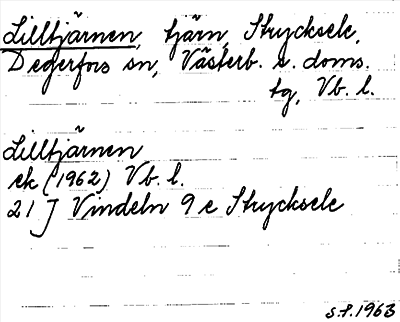 Lilltjärnen, tjärn, Strycksele,
Degerfors sn, Västerb. s. doms.
tg, Vb. l.
Lilltjärnen
ek (1962) Vb. l.
21 J Vindeln 9 e Strycksele
S.F. 1963